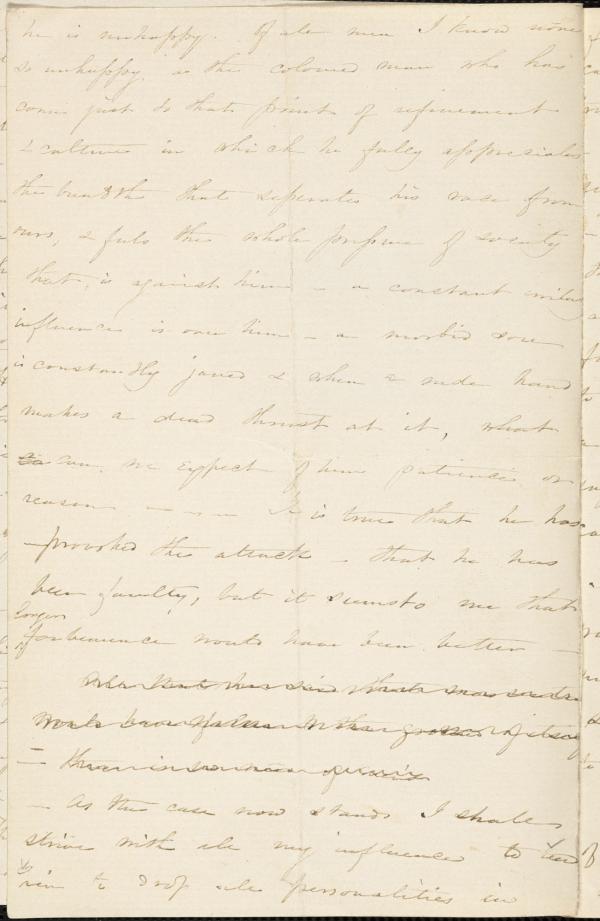 he is unhappy. Of all men I know none
so unhappy as the coloured man who has
come just to that point of refinement
& culture in which he fully appreciates
the that seperates his race from
ours, & feels the whole pressure of society
that is against him – a constant
influence is over him – a morbid sore
is constantly jarred & when a rude hand
makes a dead thrust at it, what
can we expect of him patience or
reason – – – It is true that he has
provoked this attack – that he has
been faulty, but it seems to me that
longer
forbearance would have been better –
that
would have fallen to the ground of itself
–
– As the case now stands I shall
strive with all my influence to lead
him to drop all personalities in